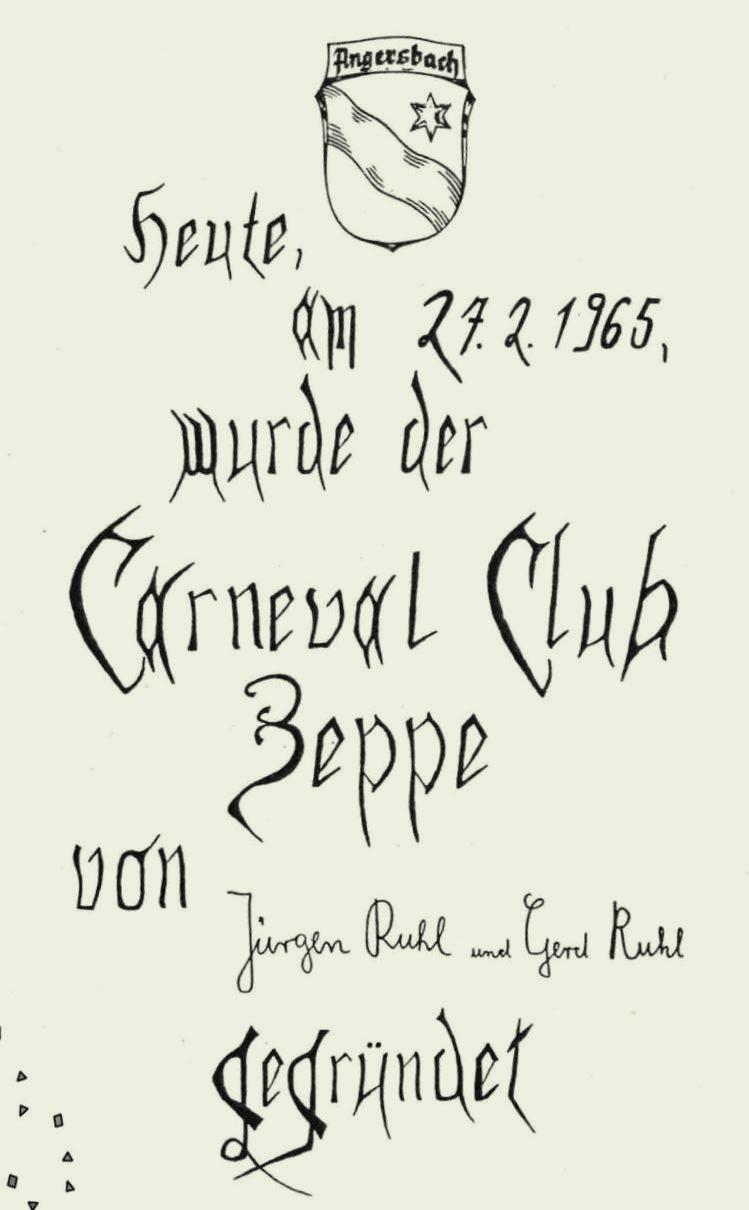 Angersbach
Heute,
am 27.2.1965,
wurde der
Carneval Club
Zeppe
von Jürgen Ruhl und Gerd Ruhl
gegründet